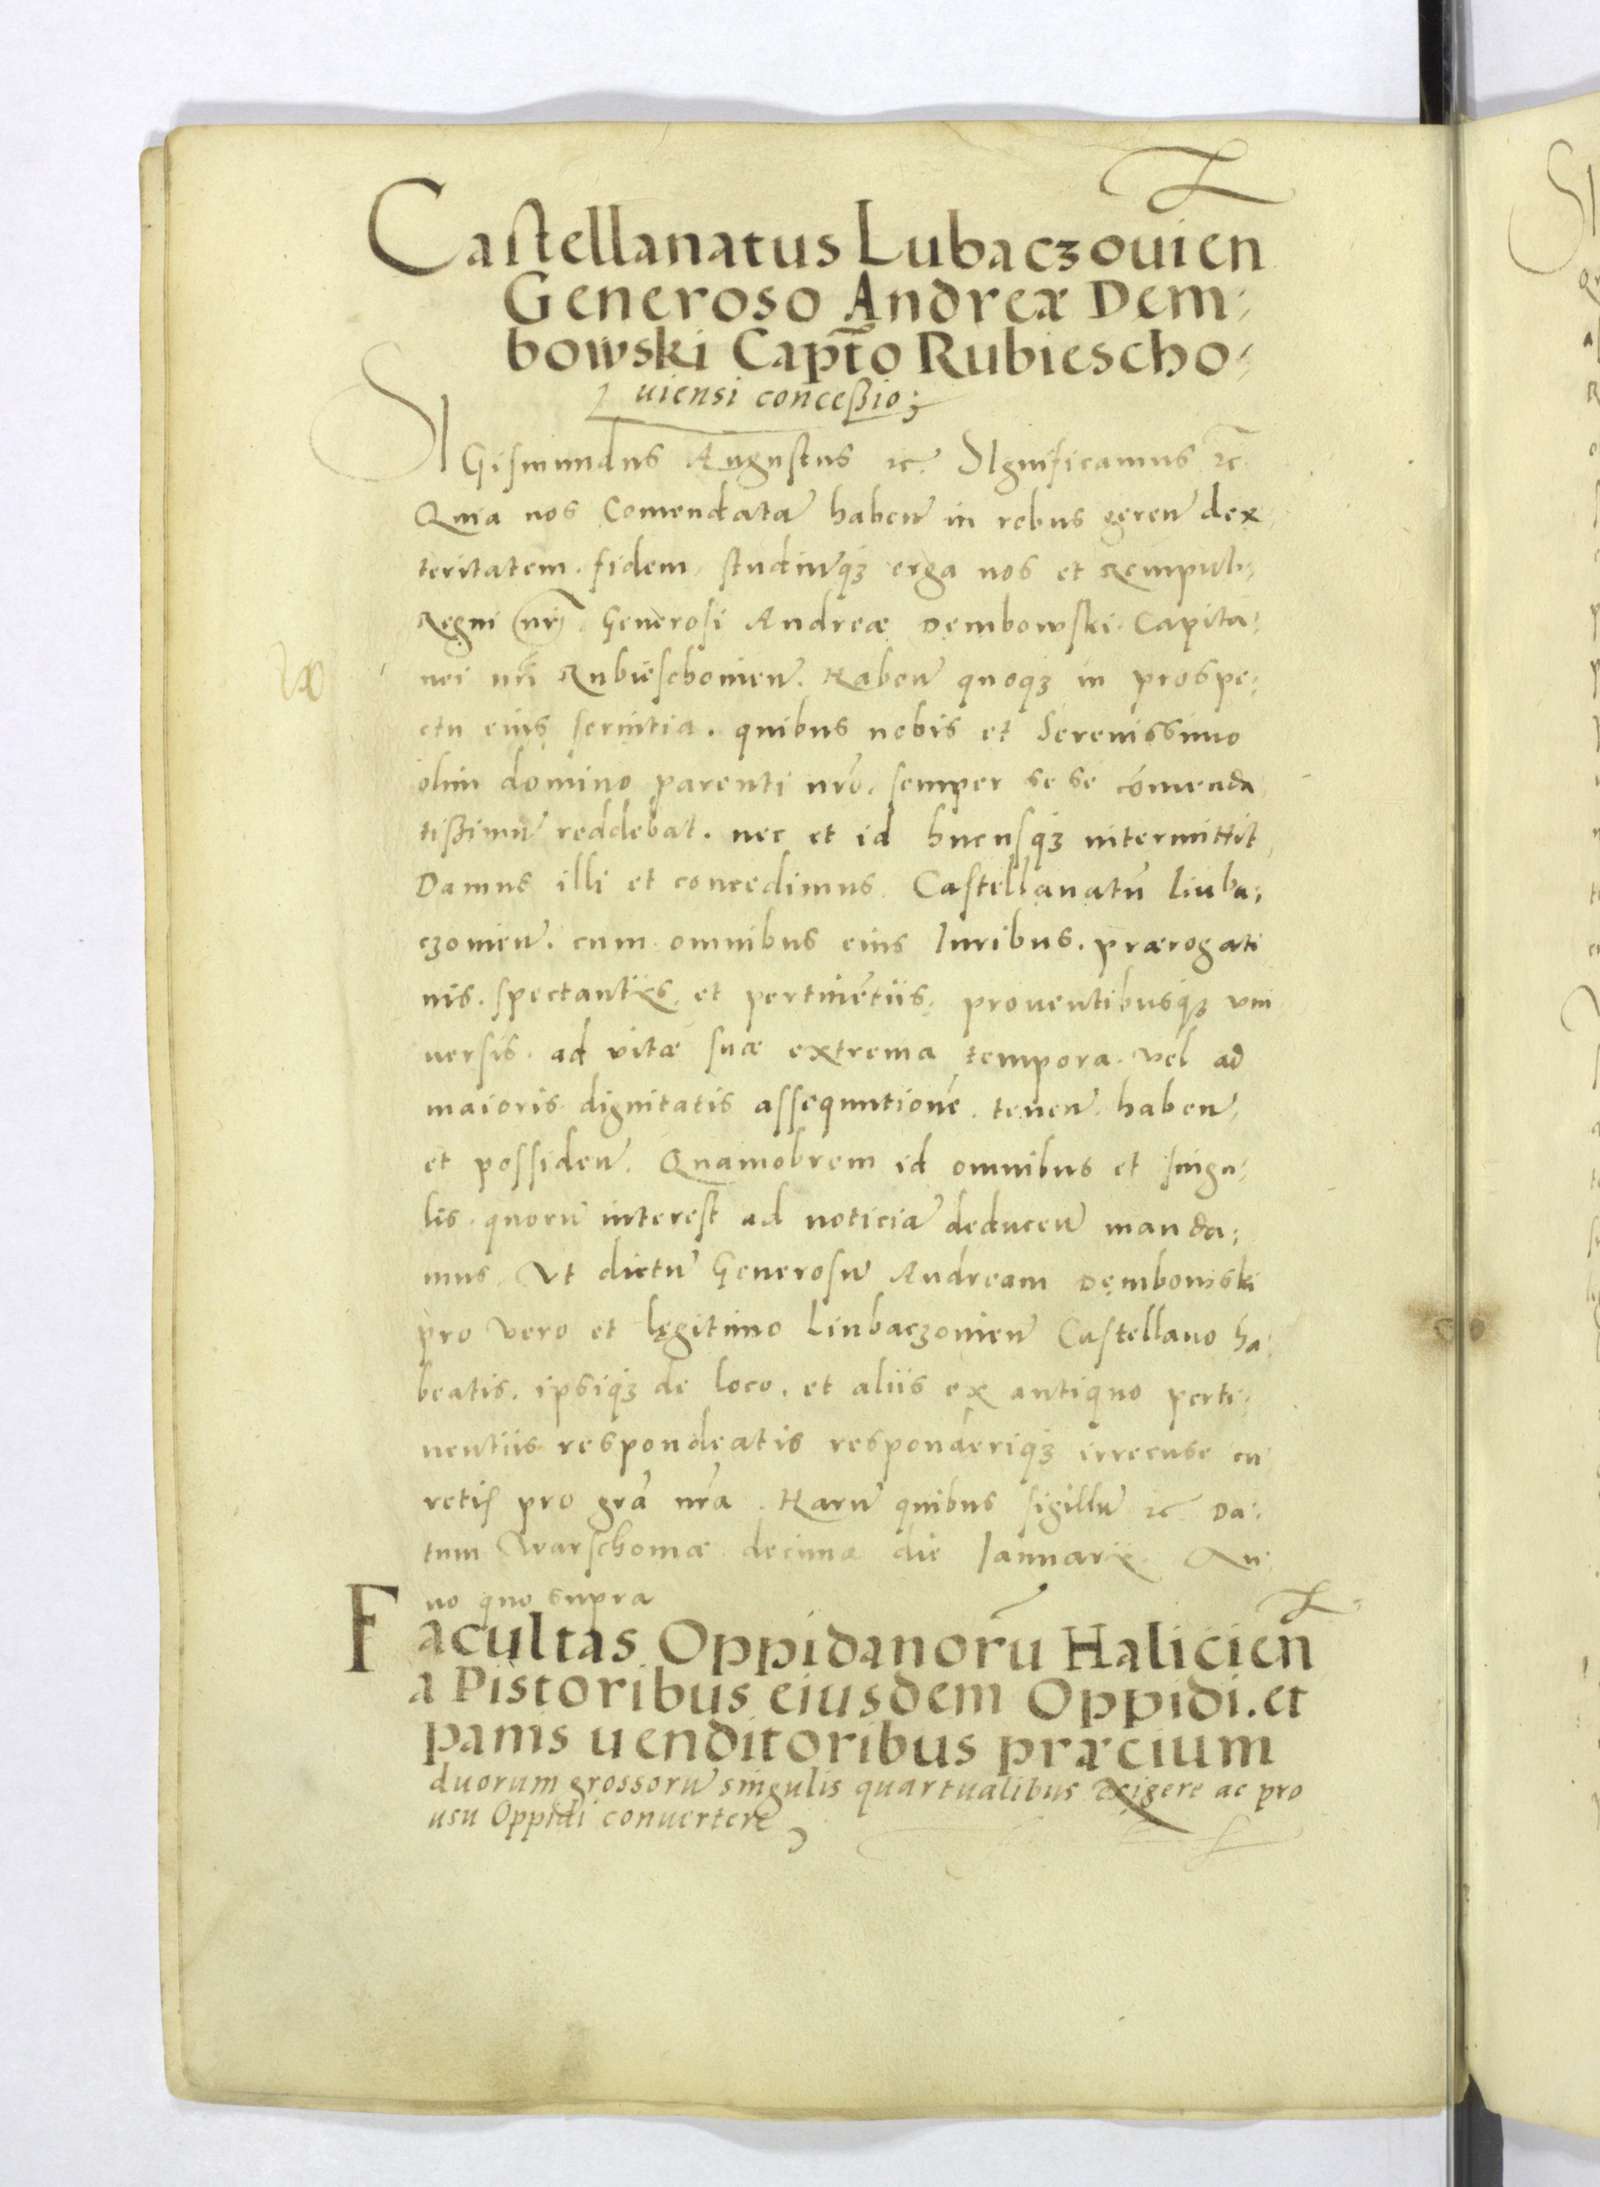 Castellanatus Lubaczouien
Generoso Andreæ Dem:
bowski Capt̃o Rubiescho:
uiensi conceßio;
SIGismundus Augustus ꝛc. SIgnificamus ꝛc
Quia nos Comendatā haben̄ in rebus geren̄ dex
teritatem. fidem, studiūqꝫ erga nos et Rempub:
Regni nr̄i. Generosi Andreæ Dembowski. Capita:
nei nr̄i Rubieschouien̄. Haben̄ quoqꝫ in prospe:
ctu eius seruitia. quibus nobis et Serenissimo
olim domino parenti nr̄o. semper se se com̄enda
tißimū reddebat. nec et id hucusqꝫ intermittit
Damus illi et concedimus Castellanatū Liuba:
czouien̄. cum omnibus eius Iuribus. prærogati
uis. spectantiis, et pertinētiis, prouentibusqꝫ vni
uersis. ad vitæ suæ extrema tempora. vel ad
maioris dignitatis assequutionē. tenen̄. haben̄.
et possiden̄. Quamobrem id omnibus et singu:
lis. quorū interest ad noticiā deducen̄ manda:
mus. Vt dictū Generosū Andream Dembowski
pro vero et legitimo Liubaczouien̄ Castellano ha:
beatis. ipsiqꝫ de loco. et aliis ex antiquo perti:
nentiis respondeatis responderiqꝫ irrecuse cu
retis pro gr̄a nr̄a. Harū quibus sigillū ꝛc Da:
tum Warschouiæ decima die Ianuarii. An:
no quo supra
Facultas Oppidanorū Halicien̄
a Pistoribus eiusdem Oppidi. et
panis uenditoribus præcium
duorum grossorū singulis quartualibus exigere ac pro
usu Oppidi conuertere